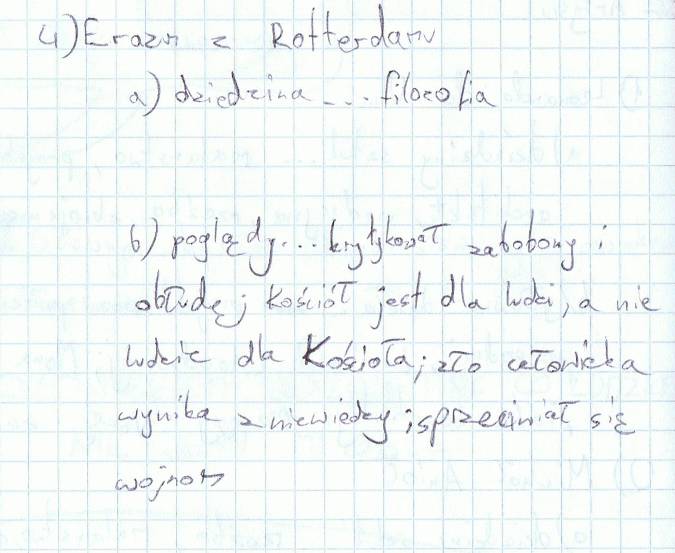 4) Erazm z Rotterdamu
a) dziedzina ... filozofia
b) poglądy ... krytykował zabobony i
obłudę; Kościół jest dla ludzi, a nie
ludzie dla Kościoła; zło człowieka
wynika z niewiedzy; sprzeciwiał się
wojnom